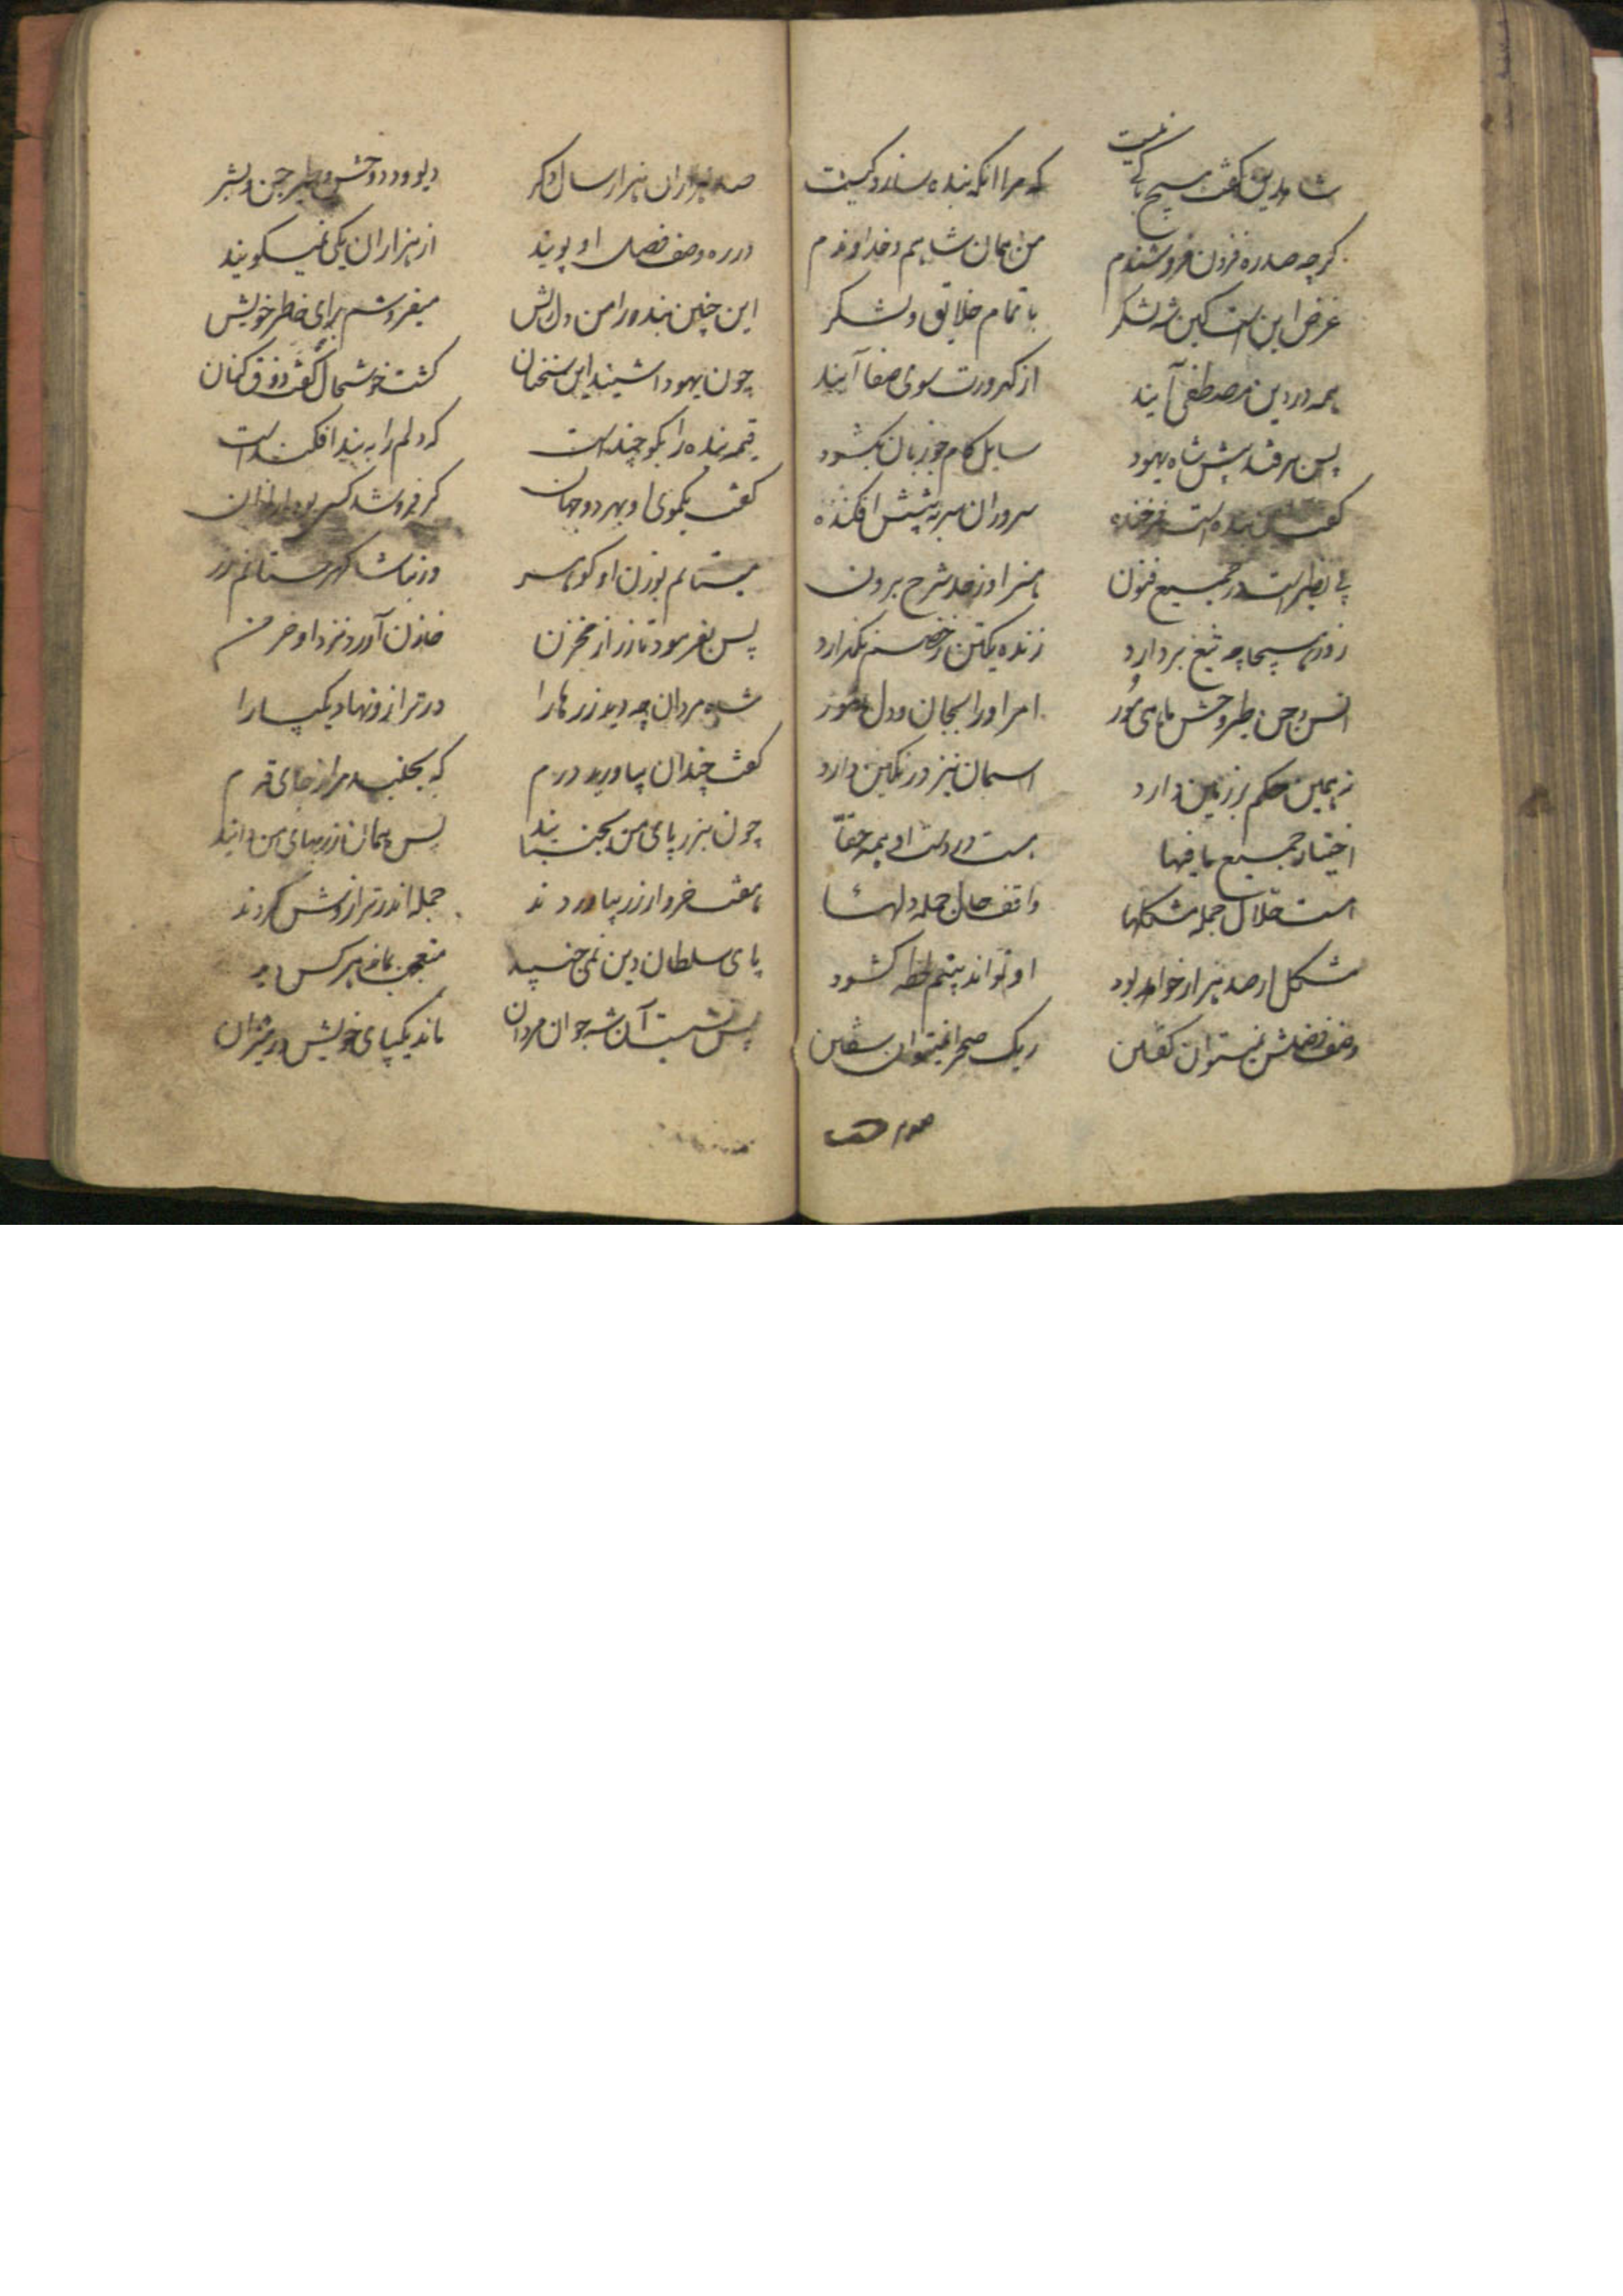 شاه دین گفت هیچ باکی نیست که مرا انکه بنده سازد کیست
کرچه صد ره فزون فروشندم من همان شاهم و خداوندم
غرض این است کین شه لشکر با تمام خلایق و لشکر
همه در دین مصطفی آیند از کدورت سوی صفا آیند
پس برفتند پیش شاه یهود سایل کام جو زبان بکشود
گفت بنده است فرخنده سروران سر به پیشش افکنده
بی نظیر است در جمیع فنون هنر او ز حد شرح برون
روز هیجا چه تیغ بردارد زنده یکتن ز خصم نکذارد
انس و جن طیر و وحش ماهی و مور امر او را بجان و دل
نه همین حکم بر زمین دارد اسمان نیز در نکین دارد
اختیار جمیع مافیها هست در دست او همه حقا
است حلال جمله مشکلها واقف حال جمله دلها
مشکل ار صد هزار خواهد بود او تواند بنیم لحظه کشود
وصف فضلش نمیتوان گفتن ریک صحرا نمیتوان سفتن
صد هزاران هزار سال دکر دیو و دد وحش و طیر جن و بشر
در ره وصف فضل او پویند از هزاران یکی نمیکویند
این چنین بنده را من دلریش میفروشم برای خاطر خویش
چون یهود اشنید این سخنان کشت خوشحال گفت ذوق کنان
قیمه بنده را بکو چند است که دلم را به بند افکند است
گفت یکموی او بهر دو جهان کر فروشد کسی بود ارزان
میستانم بوزن او کوهر ور نباشد کهر ستانم زر
پس بفرمود تا زر از مخزن خازن آورد نزد او خرمن
شاه مردان چه دید زرها را در ترازو نهاد یکپا را
گفت چندان بیاورید درم که بجنبد مرا ز جای قدم
چون بزر پای من بجنبانند پس همان زر بهای من دانند
هفت خروار زر بیاوردند جمله اندر ترازوش کردند
پای سلطان دین نمی جنبید متعجب بماند هر کس دید
پس نشست آن شه جوان مردان ماند یکپای خویش در میزان